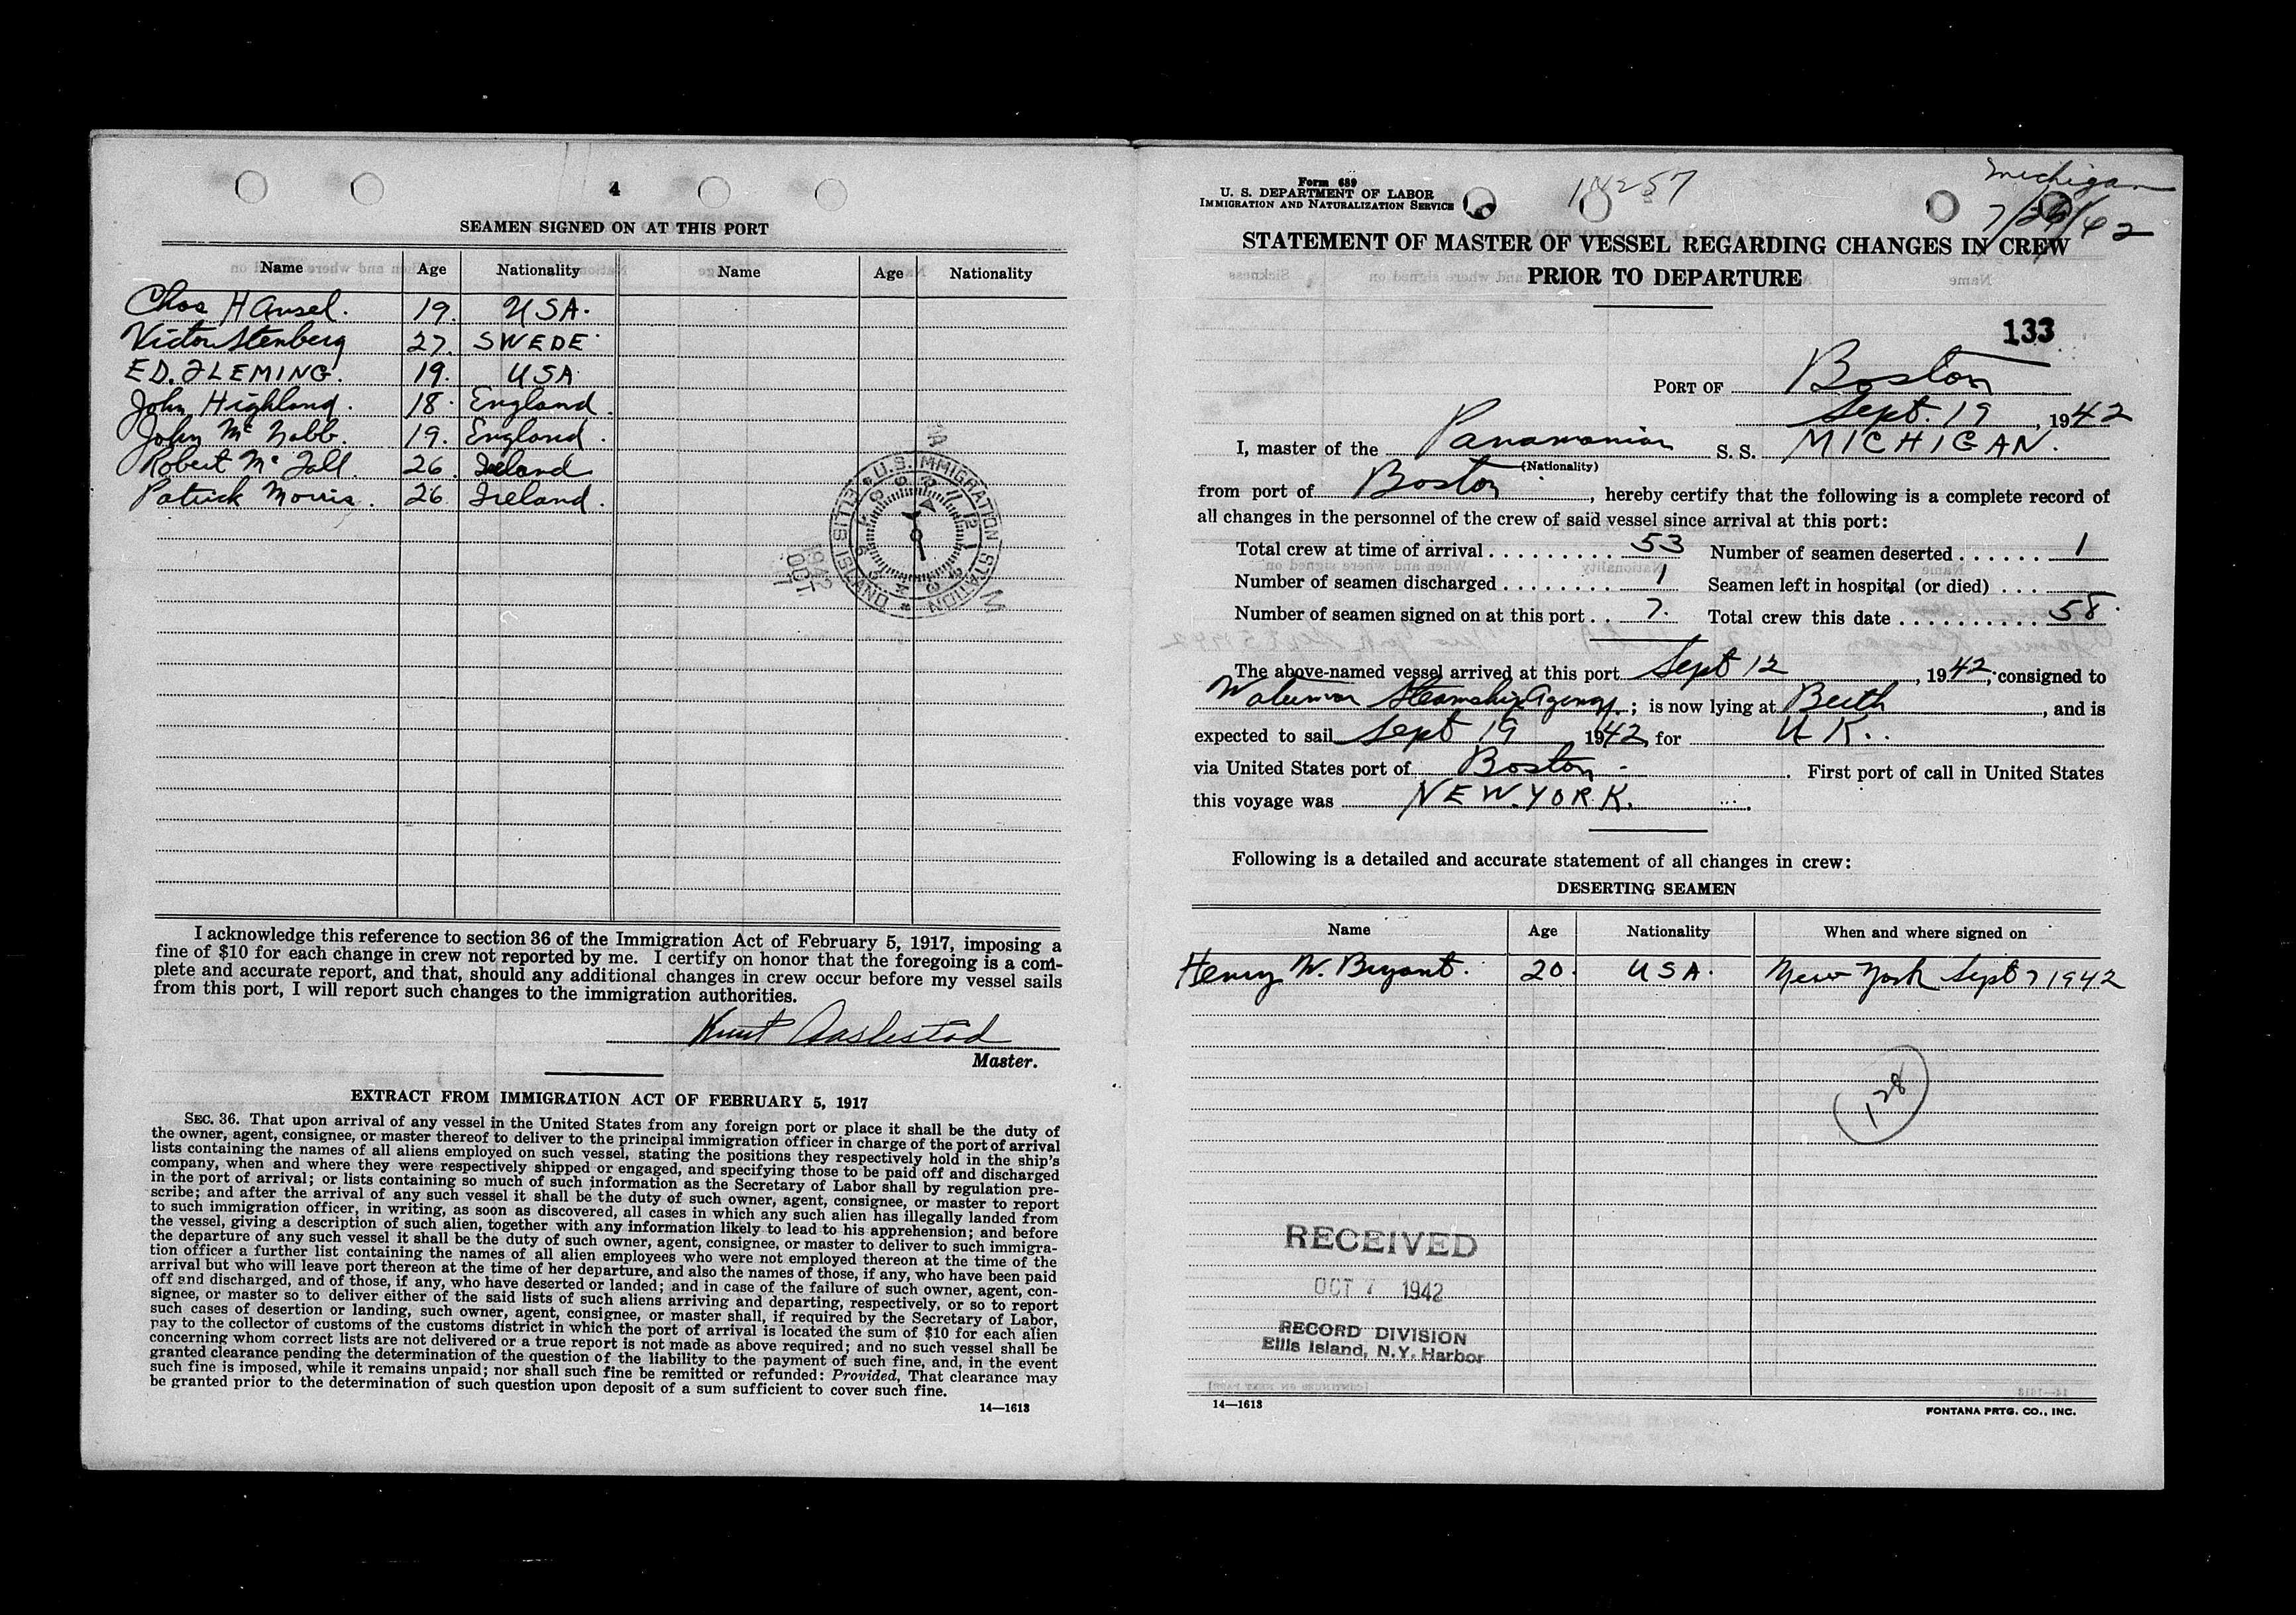 4
SEAMEN SIGNED ON AT THIS PORT
Name Age Nationality Name Age Nationality
Chas Hansel. 19. USA.
Victor Stenberg 27. SWEDE
ED. FLEMING. 19. USA
John Highland. 18. England.
John Mc Nabb. 19. England.
Robert Mc Fall. 26. Ireland
Patrick Morris. 26. Ireland.
U.S. IMMIGRATION STATION ELLIS ISLAND
1942 OCT
I acknowledge this reference to section 36 of the Immigration Act of February 5, 1917, imposing a
fine of $10 for each change in crew not reported by me. I certify on honor that the foregoing is a com-
plete and accurate report, and that, should any additional changes in crew occur before my vessel sails
from this port, I will report such changes to the immigration authorities.
Knut Aaslestad
Master.
EXTRACT FROM IMMIGRATION ACT OF FEBRUARY 5, 1917
SEC. 36. That upon arrival of any vessel in the United States from any foreign port or place it shall be the duty of
the owner, agent, consignee, or master thereof to deliver to the principal immigration officer in charge of the port of arrival
lists containing the names of all aliens employed on such vessel, stating the positions they respectively hold in the ship's
company, when and where they were respectively shipped or engaged, and specifying those to be paid off and discharged
in the port of arrival; or lists containing so much of such information as the Secretary of Labor shall by regulation pre-
scribe; and after the arrival of any such vessel it shall be the duty of such owner, agent, consignee, or master to report
to such immigration officer, in writing, as soon as discovered, all cases in which any such alien has illegally landed from
the vessel, giving a description of such alien, together with any information likely to lead to his apprehension; and before
the departure of any such vessel it shall be the duty of such owner, agent, consignee, or master to deliver to such immigra-
tion officer a further list containing the names of all alien employees who were not employed thereon at the time of the
arrival but who will leave port thereon at the time of her departure, and also the names of those, if any, who have been paid
off and discharged, and of those, if any, who have deserted or landed; and in case of the failure of such owner, agent, con-
signee, or master so to deliver either of the said lists of such aliens arriving and departing, respectively, or so to report
such cases of desertion or landing, such owner, agent, consignee, or master shall, if required by the Secretary of Labor,
pay to the collector of customs of the customs district in which the port of arrival is located the sum of $10 for each alien
concerning whom correct lists are not delivered or a true report is not made as above required; and no such vessel shall be
granted clearance pending the determination of the question of the liability to the payment of such fine, and, in the event
such fine is imposed, while it remains unpaid; nor shall such fine be remitted or refunded: Provided, That clearance may
be granted prior to the determination of such question upon deposit of a sum sufficient to cover such fine.
14—1613
Form 689
U. S. DEPARTMENT OF LABOR
IMMIGRATION AND NATURALIZATION SERVICE
Michigan
STATEMENT OF MASTER OF VESSEL REGARDING CHANGES IN CREW
PRIOR TO DEPARTURE
133
PORT OF Boston
Sept. 19, 1942
I, master of the Panamanian S. S. MICHIGAN.
(Nationality)
from port of Boston, hereby certify that the following is a complete record of
all changes in the personnel of the crew of said vessel since arrival at this port:
Total crew at time of arrival . . . . . . . . . 53 Number of seamen deserted . . . . . . 1
Number of seamen discharged . . . . . . . . 1 Seamen left in hospital (or died) . . .
Number of seamen signed on at this port . . 7. Total crew this date . . . . . . . . . . 58
The above-named vessel arrived at this port Sept 12, 1942, consigned to
Waterman Steamship Agency; is now lying at Berth, and is
expected to sail Sept 19 1942, for U K..
via United States port of Boston. First port of call in United States
this voyage was NEW.YORK.
Following is a detailed and accurate statement of all changes in crew:
DESERTING SEAMEN
Name Age Nationality When and where signed on
Henry W. Bryant. 20. USA. New York Sept 7 1942
128
RECEIVED
OCT 7 1942
RECORD DIVISION
Ellis Island, N.Y. Harbor
14—1613
FONTANA PRTG. CO., INC.